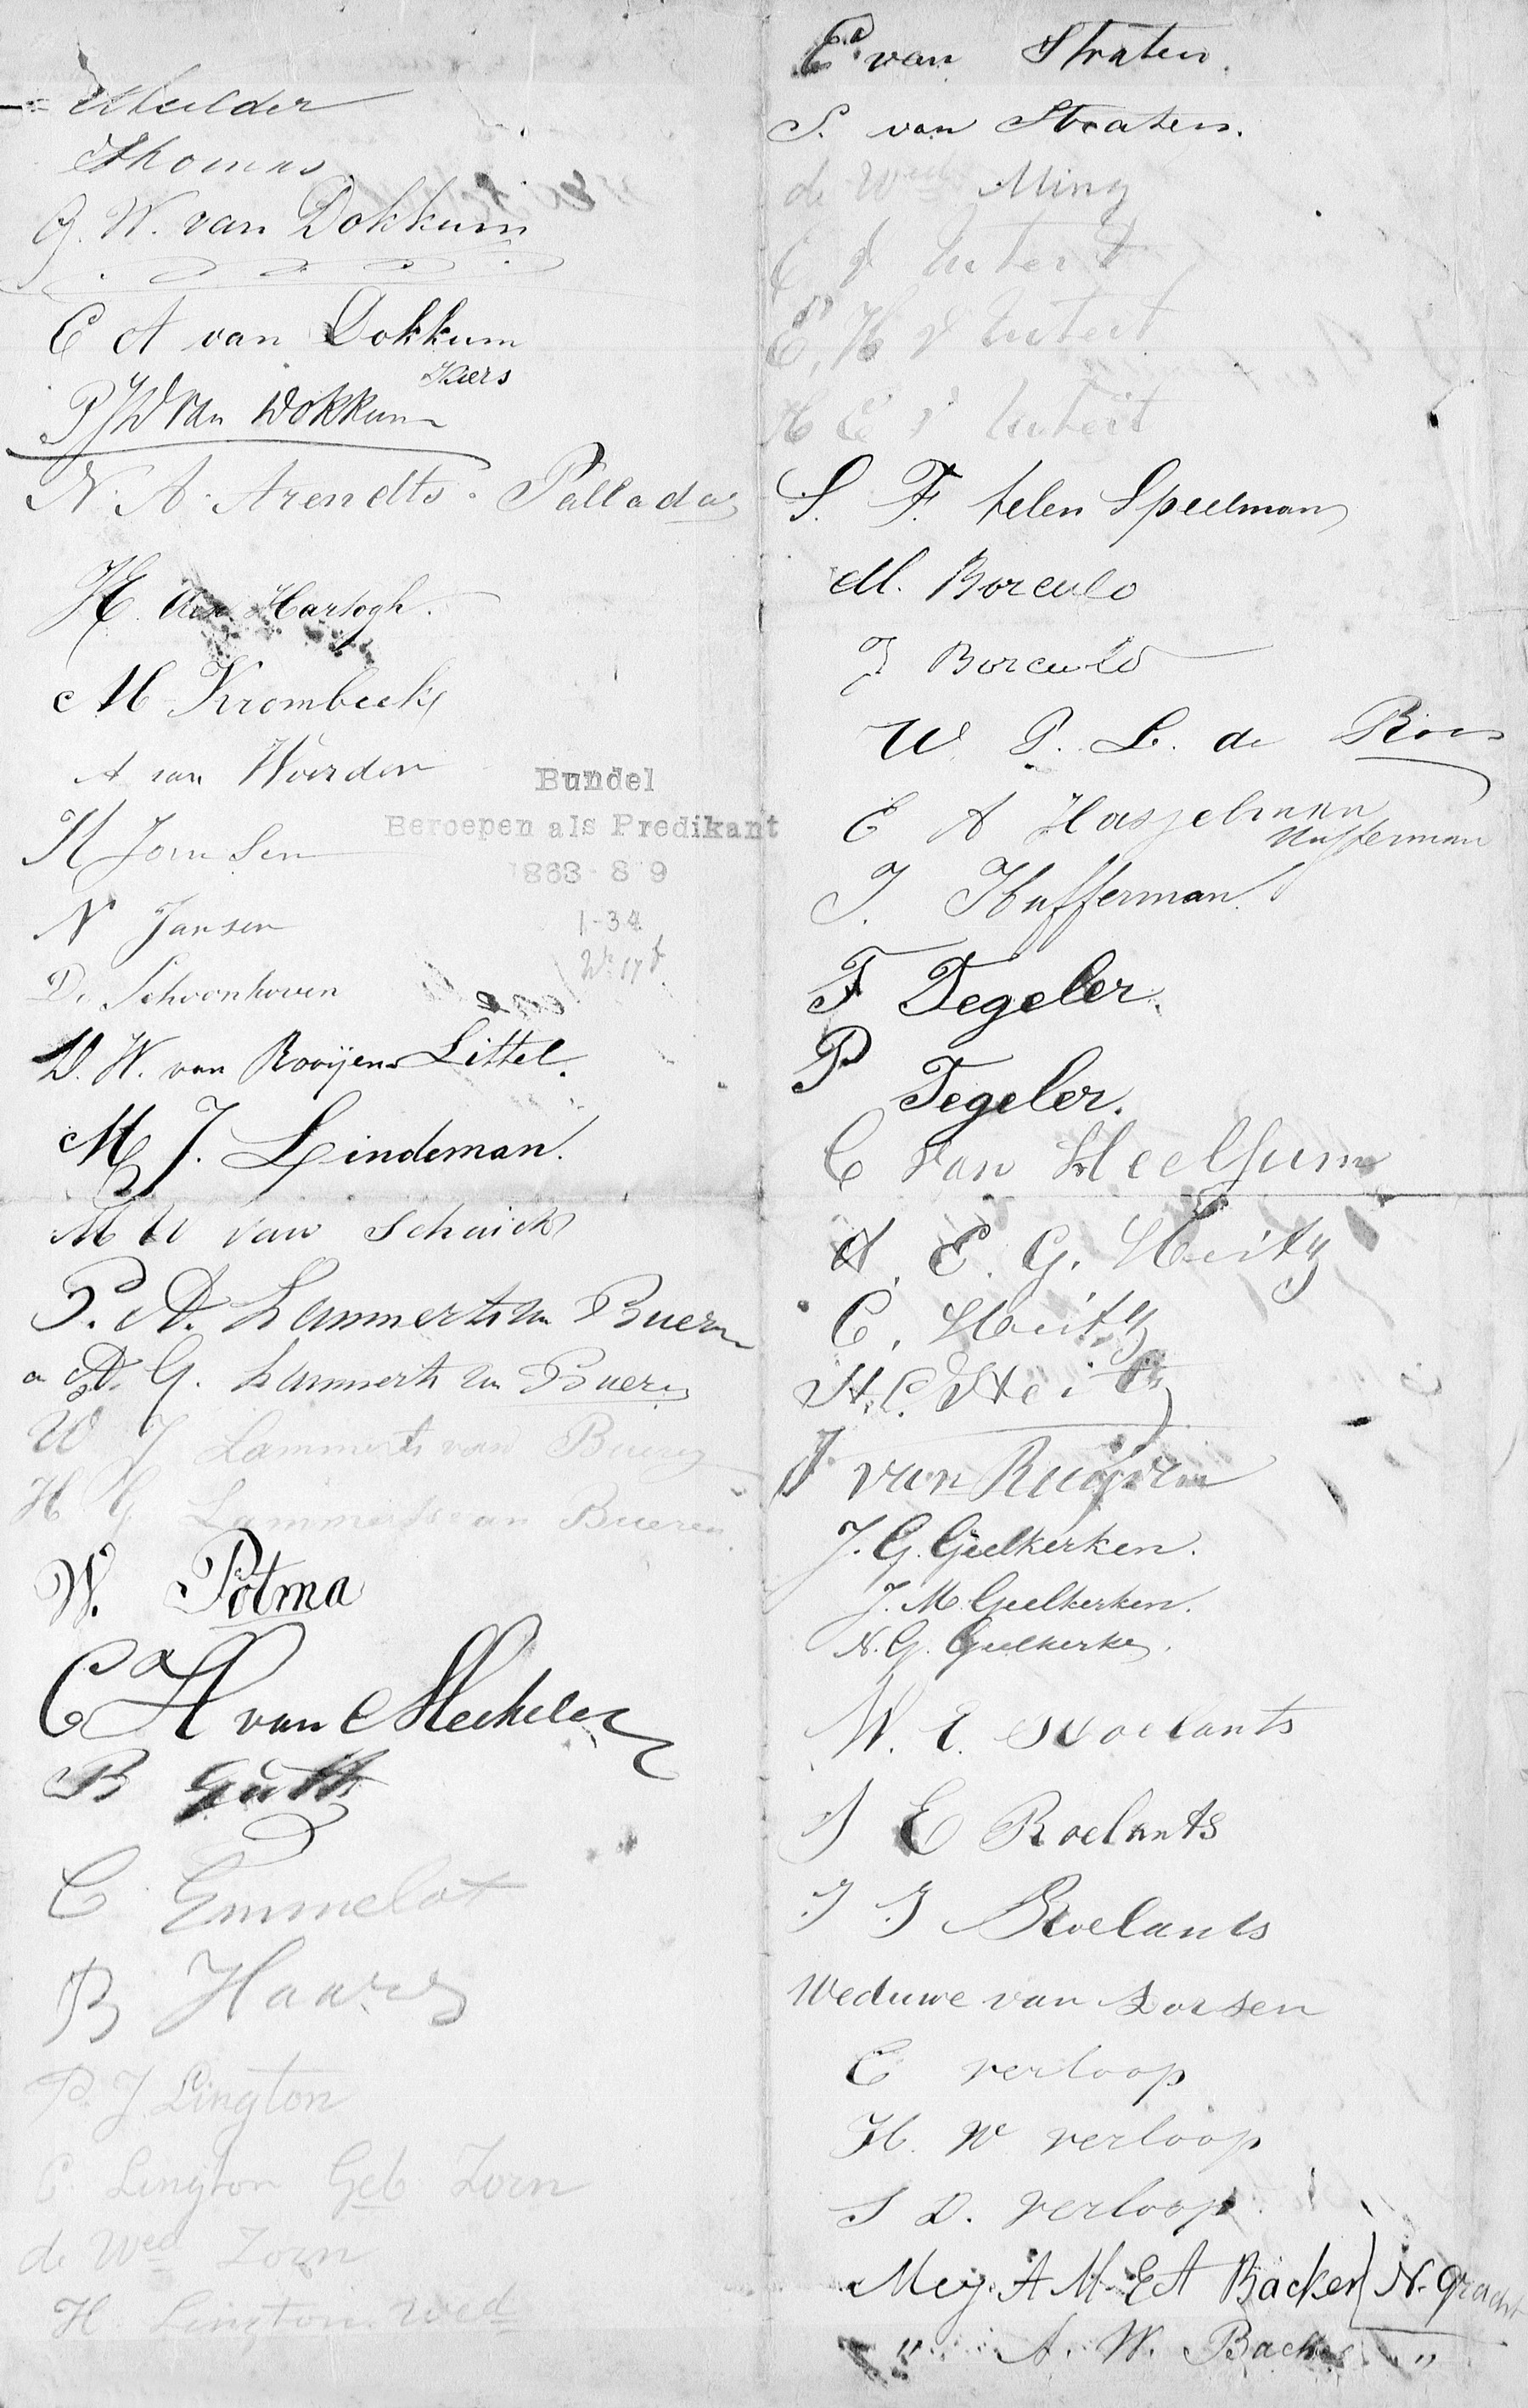 Mulder
Thomas
G. W. van Dokkum
C A van Dokkum
Kiers
P J W van Dokkum
N. A. Arendts. Pallada
H. den Hartogh.
M Krombeek
A van Woerden
H Jansen
N Jansen
D. Schoonhoven
D. W. van Rooijen Littel.
M J. Lindeman.
M W van Schaick
P. A. Lammerts van Bueren
A. G. Lammerts van Bueren
W J Lammerts van Bueren
H G Lammerts van Bueren
W. Potma
C H van Mechelen
B Guth
C Emmelot
B Haars
P. J. Lington
C. Lington Geb. Zorn
de Wed Zorn
H. Lington Wed
Bundel
Beroepen als Predikant
1863-8 9
1-34
C. van Straten.
S. van Straten.
de Wed Ming
S. F. Telen Speelman
M. Borculo
J Borculo
W. P. L. de Roos
E A Hasselman
Hufferman
J. Hufferman
F Tegeler.
P Tegeler.
C van Heelsum
A. E. G. Heitz
C. Heitz
H. C. Heitz
J van Ruijven
J. G. Geelkerken.
J. M. Geelkerken.
N. G. Geelkerken.
W. E. Roelants
J E Roelants
J J Roelants
Weduwe van Dorsen
C verloop
H. W verloop
S D. verloop
Mej. A M E A Bäcker N. Gracht
" A. W. Backer "